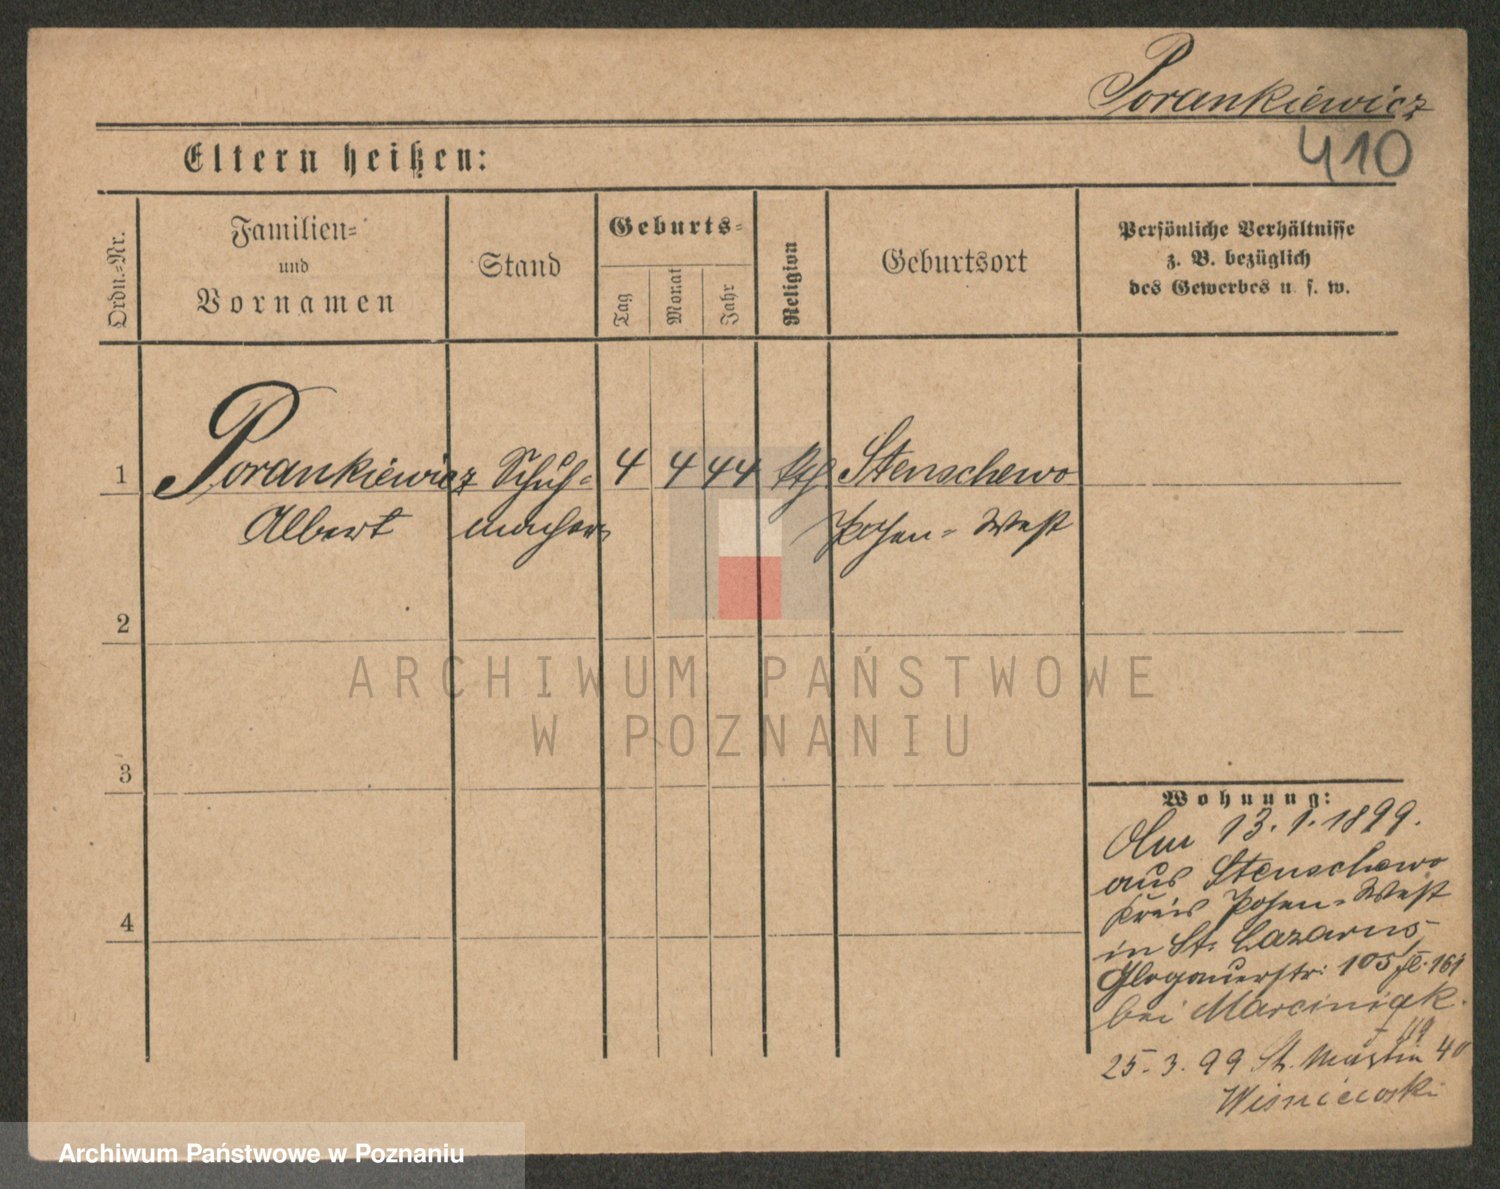 Porankiewicz
410
Eltern heißen:
Ordn.-Nr.
Familien-
und
Vornamen
Stand
Geburts-
Tag
Monat
Jahr
Religion
Geburtsort
Persönliche Verhältnisse
z. B. bezüglich
des Gewerbes u. s. w.
1 Porankiewicz Schuh- 4 4 44 kth Stenschewo
Albert macher Posen-West
2
3
4
Wohnung:
Am 13.1.1899.
aus Stenschewo
Kreis Posen-West
in St. Lazarus
Glogauerstr: 105 fl. 161
bei Marciniak.
25.3.99 St. Martin 40
Wisniewski
ARCHIWUM PAŃSTWOWE
W POZNANIU
Archiwum Państwowe w Poznaniu